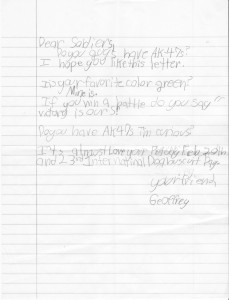 Dear Soldiers,
Do you guys have AK47s?
I hope you like this letter.
Is your favorite color green?
Mine is.
If you win a battle do you say
victory is ours?
Do you have AK47s I'm curious?
It's almost Love your Pet day Feb. 20th
and 23rd International Dog Biscuit Day
your friend
Geoffrey